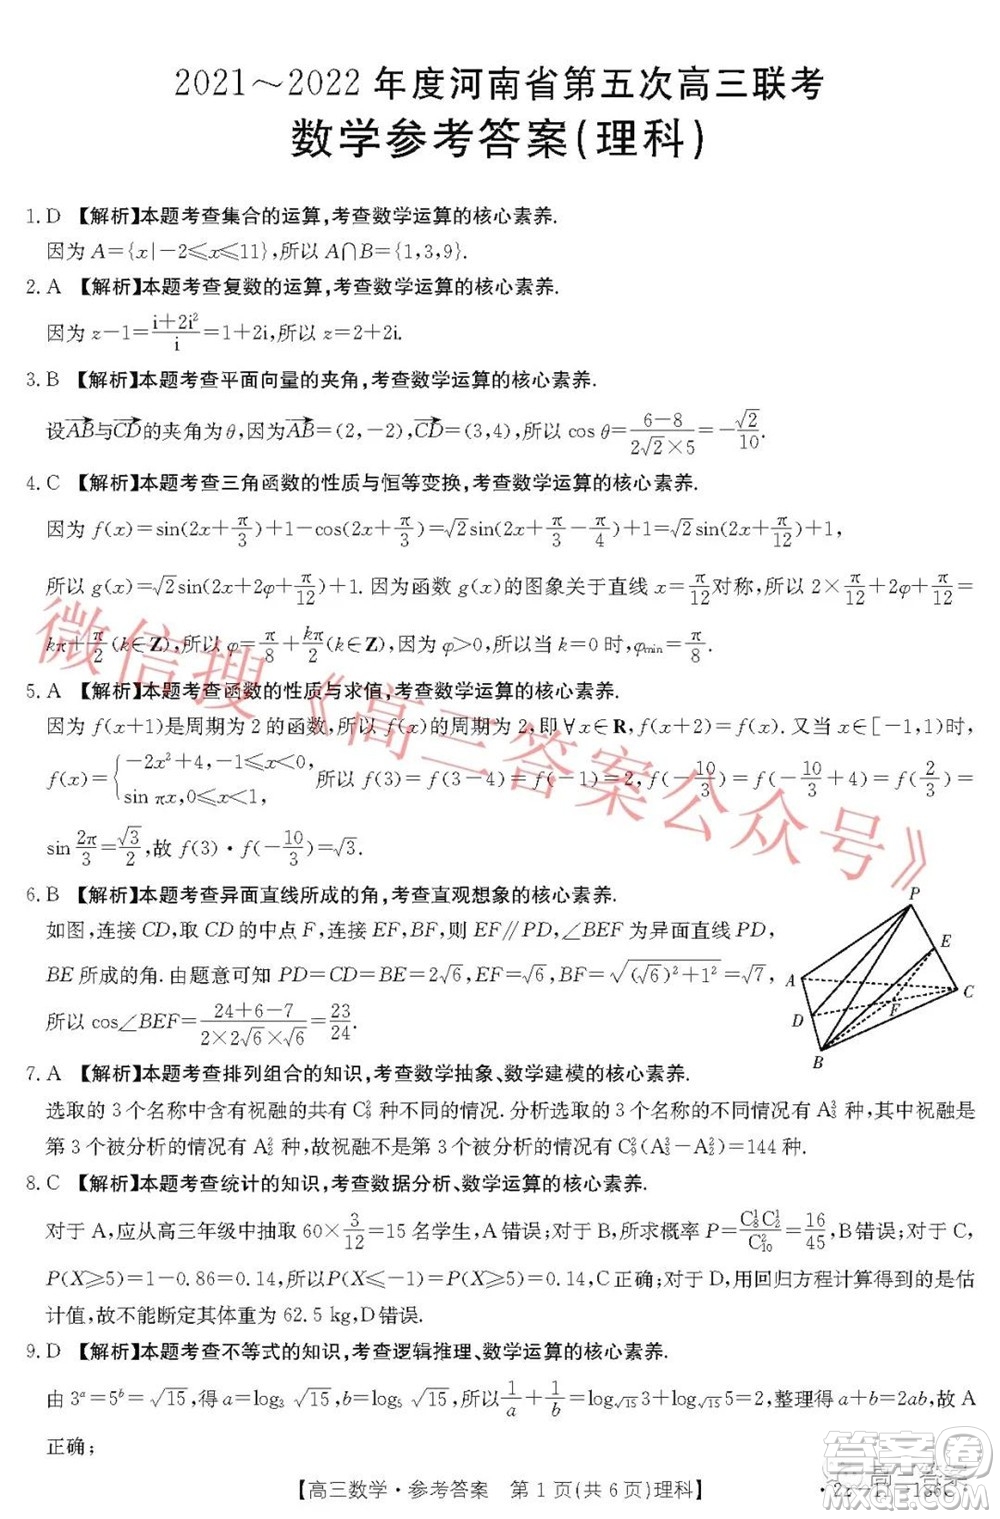 2021～2022年度河南省第五次高三联考
数学参考答案(理科)
1. D 【解析】本题考查集合的运算,考查数学运算的核心素养.
因为 A={x|-2≤x≤11},所以 A∩B={1,3,9}.
2. A 【解析】本题考查复数的运算,考查数学运算的核心素养.
因为 z-1=(i+2i²)/i=1+2i,所以 z=2+2i.
3. B 【解析】本题考查平面向量的夹角,考查数学运算的核心素养.
设AB与CD的夹角为θ,因为AB=(2,-2),CD=(3,4),所以 cos θ=(6-8)/(2√2×5)=-√2/10.
4. C 【解析】本题考查三角函数的性质与恒等变换,考查数学运算的核心素养.
因为 f(x)=sin(2x+π/3)+1-cos(2x+π/3)=√2sin(2x+π/3-π/4)+1=√2sin(2x+π/12)+1,
所以 g(x)=√2sin(2x+2φ+π/12)+1. 因为函数 g(x)的图象关于直线 x=π/12对称,所以 2×π/12+2φ+π/12=
kπ+π/2(k∈Z),所以 φ=π/8+kπ/2(k∈Z). 因为 φ>0,所以当 k=0 时,φmin=π/8.
5. A 【解析】本题考查函数的性质与求值,考查数学运算的核心素养.
因为 f(x+1)是周期为 2 的函数,所以 f(x)的周期为 2,即∀x∈R,f(x+2)=f(x). 又当 x∈[-1,1)时,
f(x)={-2x²+4,-1≤x<0,
sin πx,0≤x<1,
所以 f(3)=f(3-4)=f(-1)=2,f(-10/3)=f(-10/3+4)=f(2/3)=
sin 2π/3=√3/2,故 f(3)·f(-10/3)=√3.
6. B 【解析】本题考查异面直线所成的角,考查直观想象的核心素养.
如图,连接 CD,取 CD 的中点 F,连接 EF,BF,则 EF∥PD,∠BEF 为异面直线 PD,
BE 所成的角. 由题意可知 PD=CD=BE=2√6,EF=√6,BF=√((√6)²+1²)=√7,
所以 cos∠BEF=(24+6-7)/(2×2√6×√6)=23/24.
P
E
A
C
F
D
B
7. A 【解析】本题考查排列组合的知识,考查数学抽象、数学建模的核心素养.
选取的 3 个名称中含有祝融的共有 C₉² 种不同的情况. 分析选取的 3 个名称的不同情况有 A₃³ 种,其中祝融是
第 3 个被分析的情况有 A₂² 种,故祝融不是第 3 个被分析的情况有 C₉²(A₃³-A₂²)=144 种.
8. C 【解析】本题考查统计的知识,考查数据分析、数学运算的核心素养.
对于 A,应从高三年级中抽取 60×3/12=15 名学生,A 错误;对于 B,所求概率 P=C₈¹C₂¹/C₁₀²=16/45,B 错误;对于 C,
P(X≥5)=1-0.86=0.14,所以P(X≤-1)=P(X≥5)=0.14,C 正确;对于 D,用回归方程计算得到的是估
计值,故不能断定其体重为 62.5 kg,D 错误.
9. D 【解析】本题考查不等式的知识,考查逻辑推理、数学运算的核心素养.
由 3ᵃ=5ᵇ=√15,得 a=log₃√15,b=log₅√15,所以 1/a+1/b=log√15 3+log√15 5=2,整理得 a+b=2ab,故 A
正确;
【高三数学·参考答案 第 1 页(共 6 页)理科】
·22-11-186C·
微信搜《高三答案公众号》
答案圈